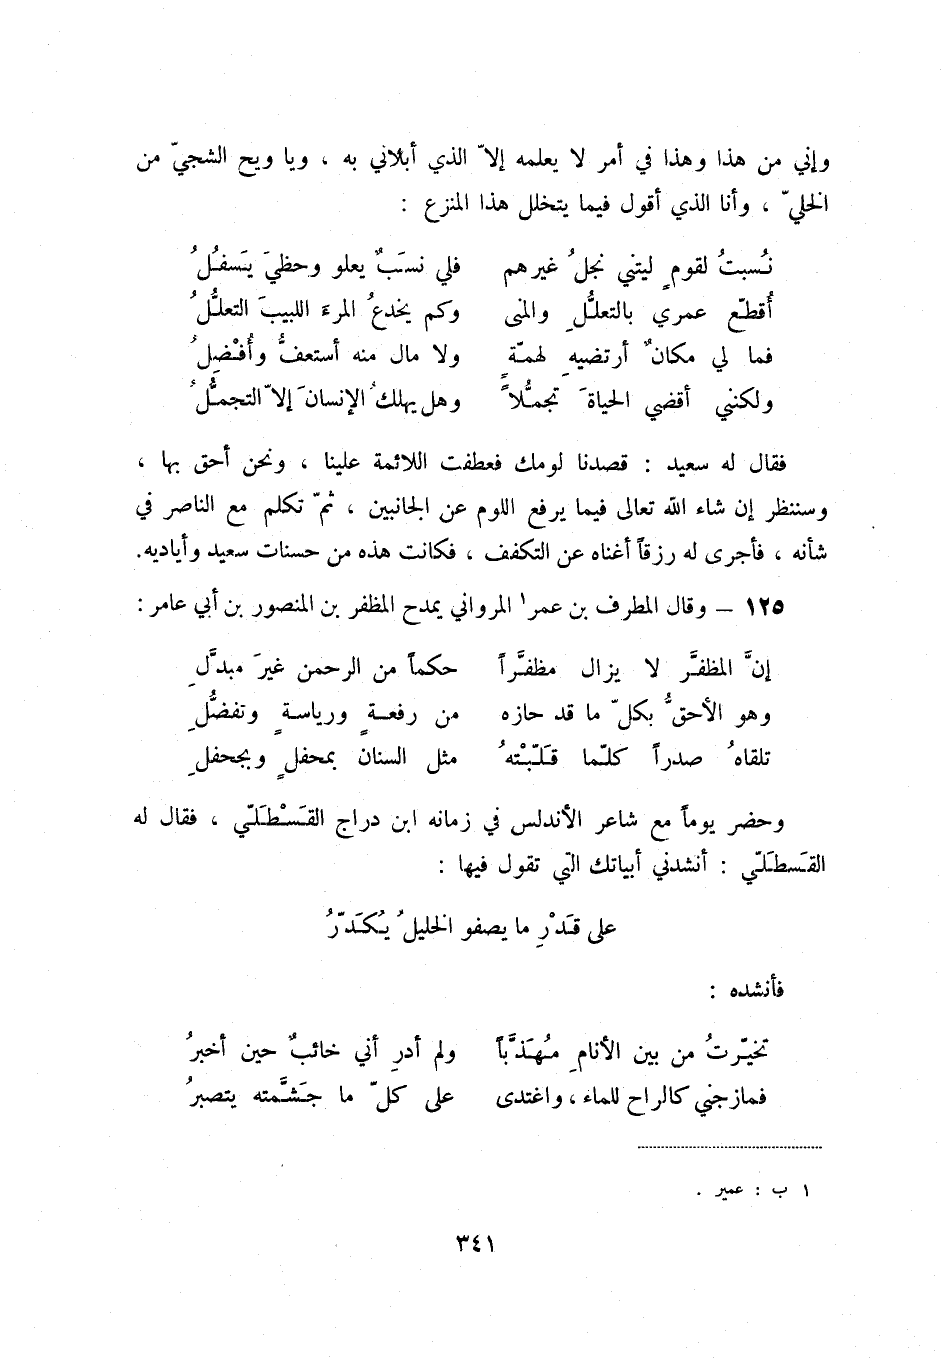 وإني من هذا وهذا في أمر لا يعلمه إلاّ الذي أبلاني به ، ويا ويح الشجيّ من
الخليّ ، وأنا الذي أقول فيما يتخلل هذا المنزع :
نُسبتُ لقومٍ ليتني نجلُ غيرهم فلي نسَبٌ يعلو وحظيَ يَسفُلُ
أُقطّع عمري بالتعلُّلِ والمنى وكم يخدعُ المرءَ اللبيبَ التعلُّلُ
فما لي مكانٌ أرتضيهِ لهمّةٍ ولا مال منه أستعفُّ وأُفْضِلُ
ولكنني أقضي الحياةَ تجمُّلاً وهل يهلكُ الإنسانَ إلاّ التجمُّلُ
فقال له سعيد : قصدنا لومك فعطفت اللائمة علينا ، ونحن أحق بها ،
وسننظر إن شاء الله تعالى فيما يرفع اللوم عن الجانبين ، ثمّ تكلم مع الناصر في
شأنه ، فأجرى له رزقاً أغناه عن التكفف ، فكانت هذه من حسنات سعيد وأياديه.
١٢٥ – وقال المطرف بن عمر١ المرواني يمدح المظفر بن المنصور بن أبي عامر :
إنَّ المظفَّر لا يزال مظفَّراً حكماً من الرحمن غيرَ مبدَّلِ
وهو الأحقُّ بكلّ ما قد حازه من رفعةٍ ورياسةٍ وتفضُّلِ
تلقاهُ صدراً كلّما قلّبْتهُ مثل السنان بمحفلٍ وبجحفلِ
وحضر يوماً مع شاعر الأندلس في زمانه ابن دراج القَسْطَلّي ، فقال له
القَسطَلّي : أنشدني أبياتك التي تقول فيها :
على قَدْرِ ما يصفو الخليلُ يُكَدّرُ
فأنشده :
تخيّرتُ من بين الأنامِ مُهَذَّباً ولم أدرِ أني خائبٌ حين أخبرُ
فمازجني كالراح للماء ، واغتدى على كلّ ما جَشَّمته يتصبرُ
١ ب : عمير .
٣٤١